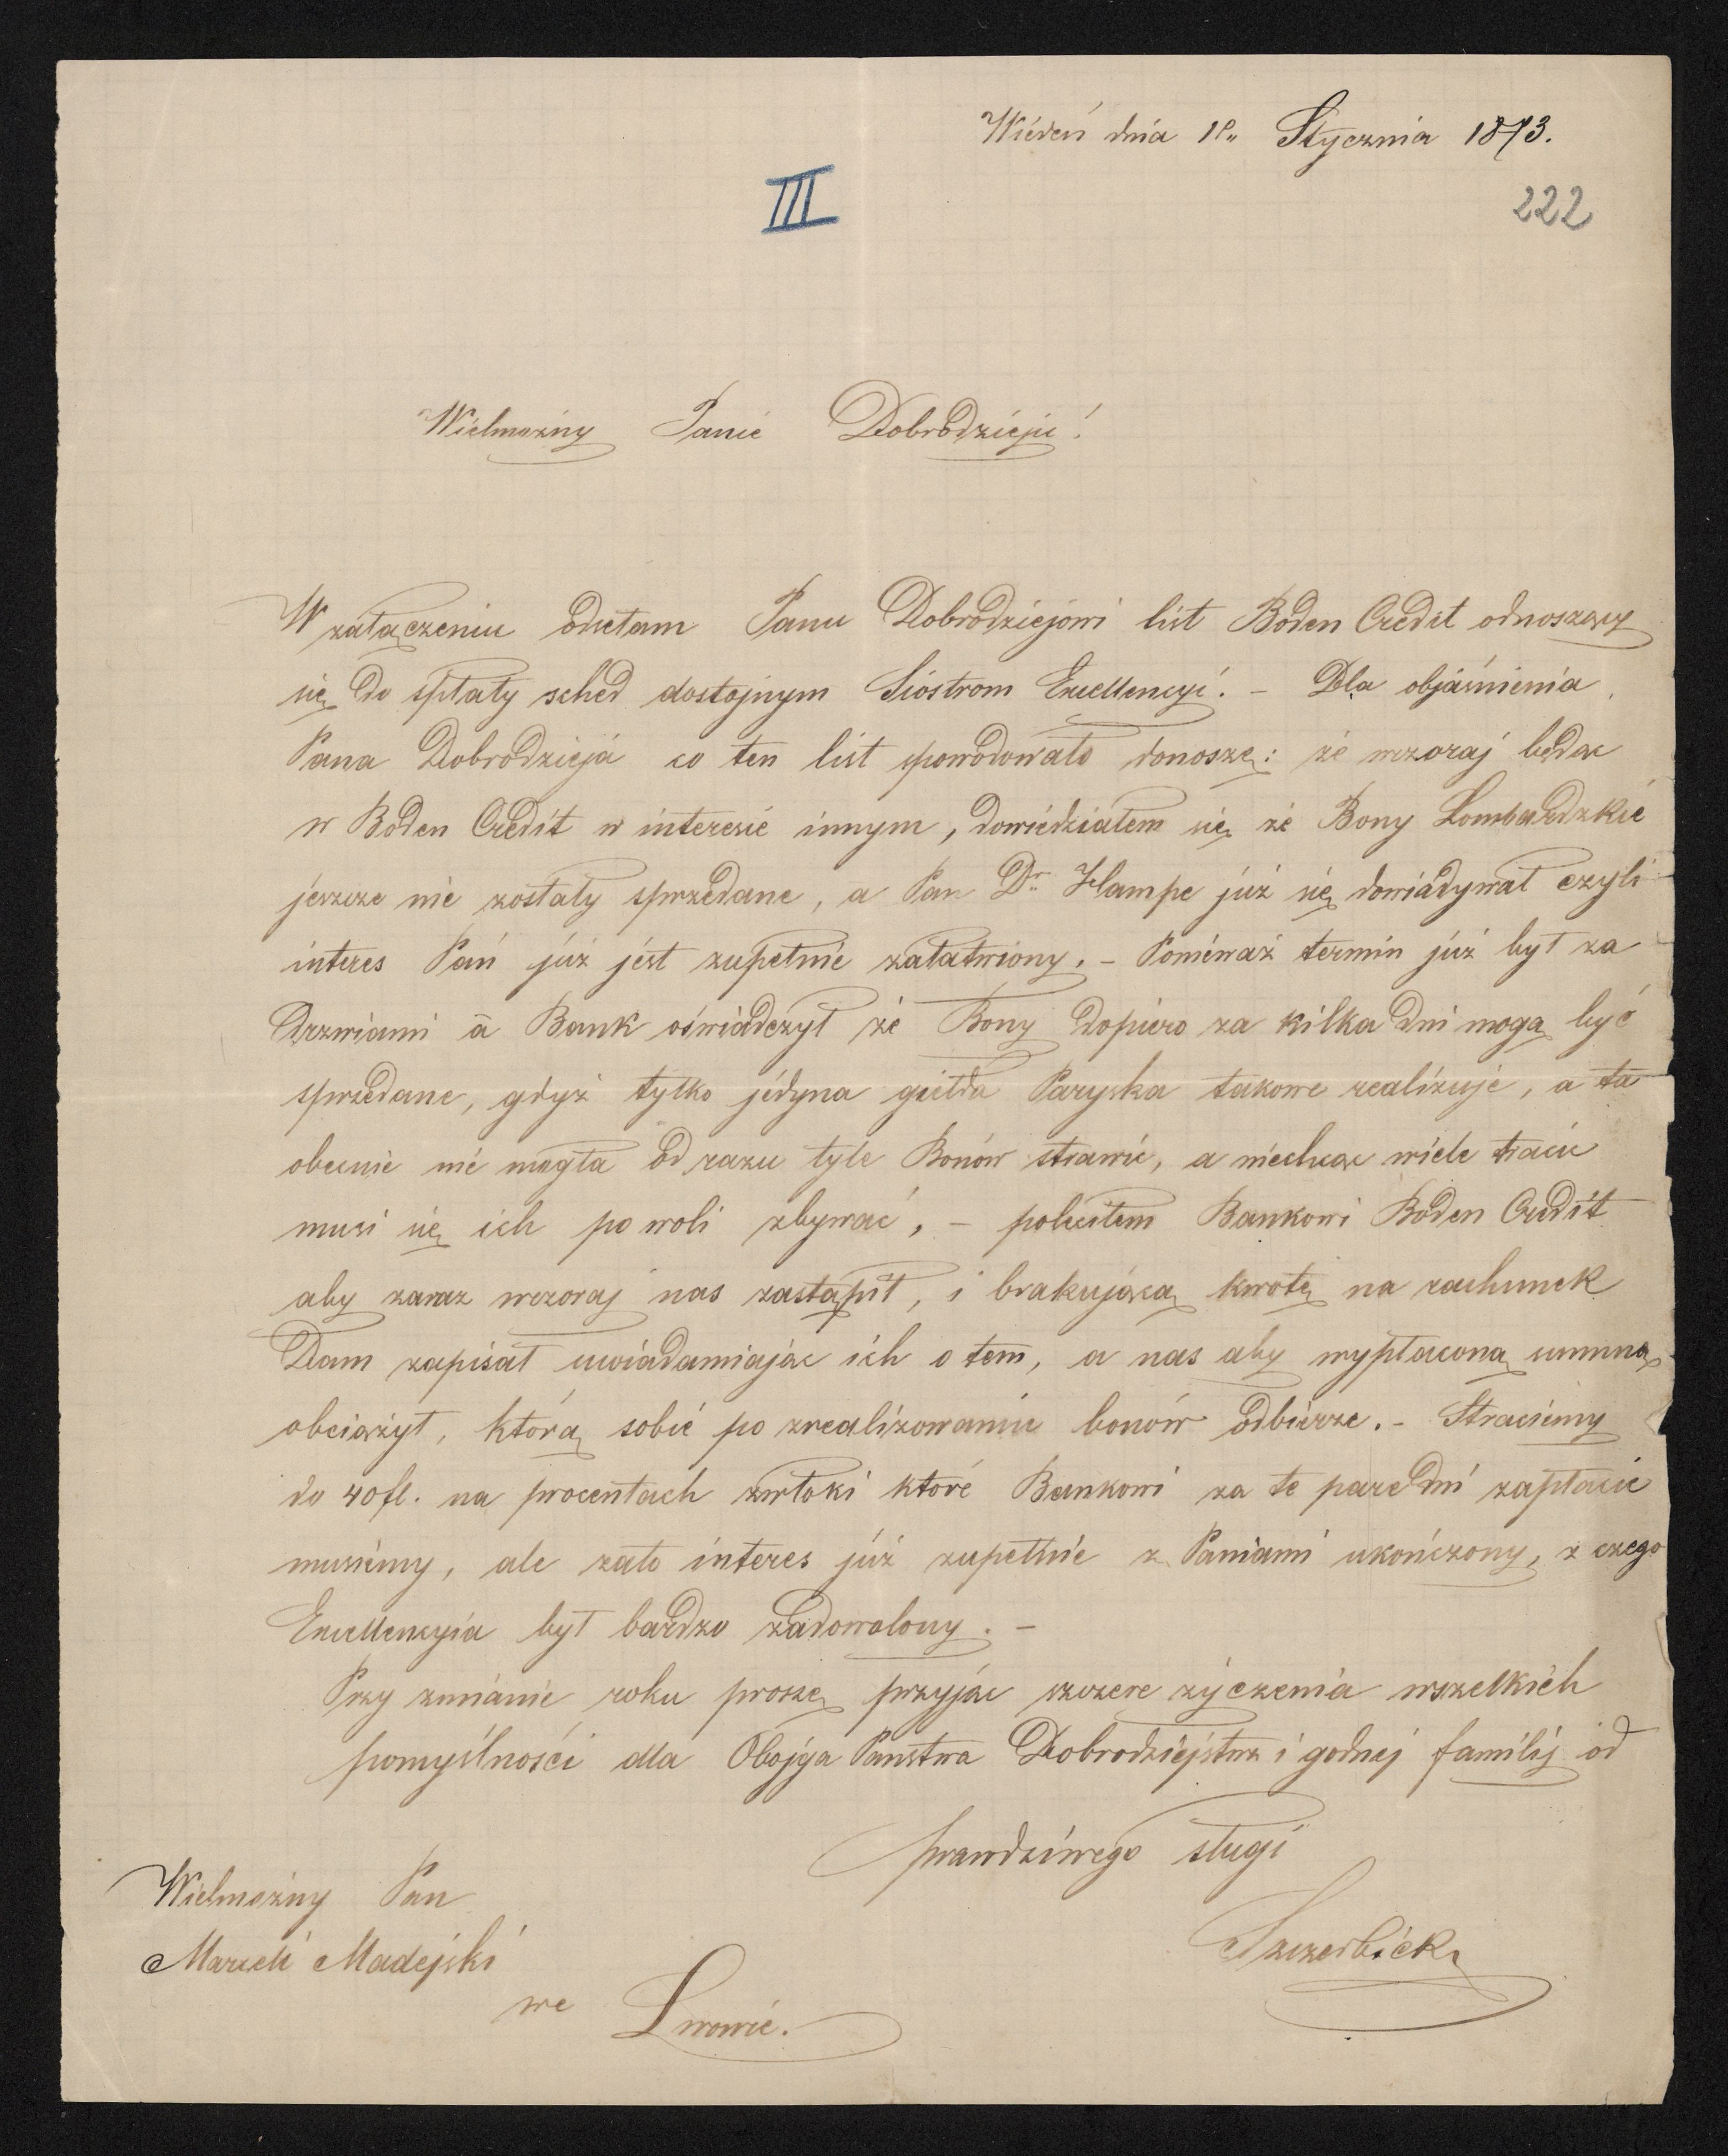 Wiedeń dnia 1go Stycznia 1873.
III
222
Wielmożny Panie Dobrodzieju!
W załączeniu odsełam Panu Dobrodziejowi list Boden Credit odnoszący
się do spłaty sched dostojnym Siostrom Excellencyi. – Dla objaśnienia
Pana Dobrodzieja co ten list spowodowało donoszę: że wczoraj będąc
w Boden Credit w interesie innym, dowiedziałem się że Bony Lombardzkie
jeszcze nie zostały sprzedane, a Pan Dr. Hampe już się dowiadywał czyli
interes Pań już jest zupełnie załatwiony. – Ponieważ termin już był za
drzwiami a Bank oświadczył że Bony dopiero za kilka dni mogą być
sprzedane, gdyż tylko jedyna giełda Paryska takowe realizuje, a ta
obecnie nie mogła od razu tyle Bonów strawić, a niechcąc wiele tracić
musi się ich po woli zbywać, – poleciłem Bankowi Boden Credit
aby zaraz wczoraj nas zastąpił, i brakującą kwotę na rachunek
Dam zapisał uwiadamiając ich o tem, a nas aby wypłaconą summą
obciążył, którą sobie po zrealizowaniu bonów odbierze. – Straciemy
do 40 fl. na procentach zwłoki które Bankowi za te parę dni zapłacić
musiemy, ale zato interes już zupełnie z Paniami ukończony, z czego
Excellencyia był bardzo zadowolony. –
Przy zmianie roku proszę przyjąć szczere życzenia wszelkich
pomyślności dla Obojga Państwa Dobrodziejstwa i godnej familij od
prawdziwego sługi
Szczerbicki
Wielmożny Pan
Marceli Madejski
we Lwowie.